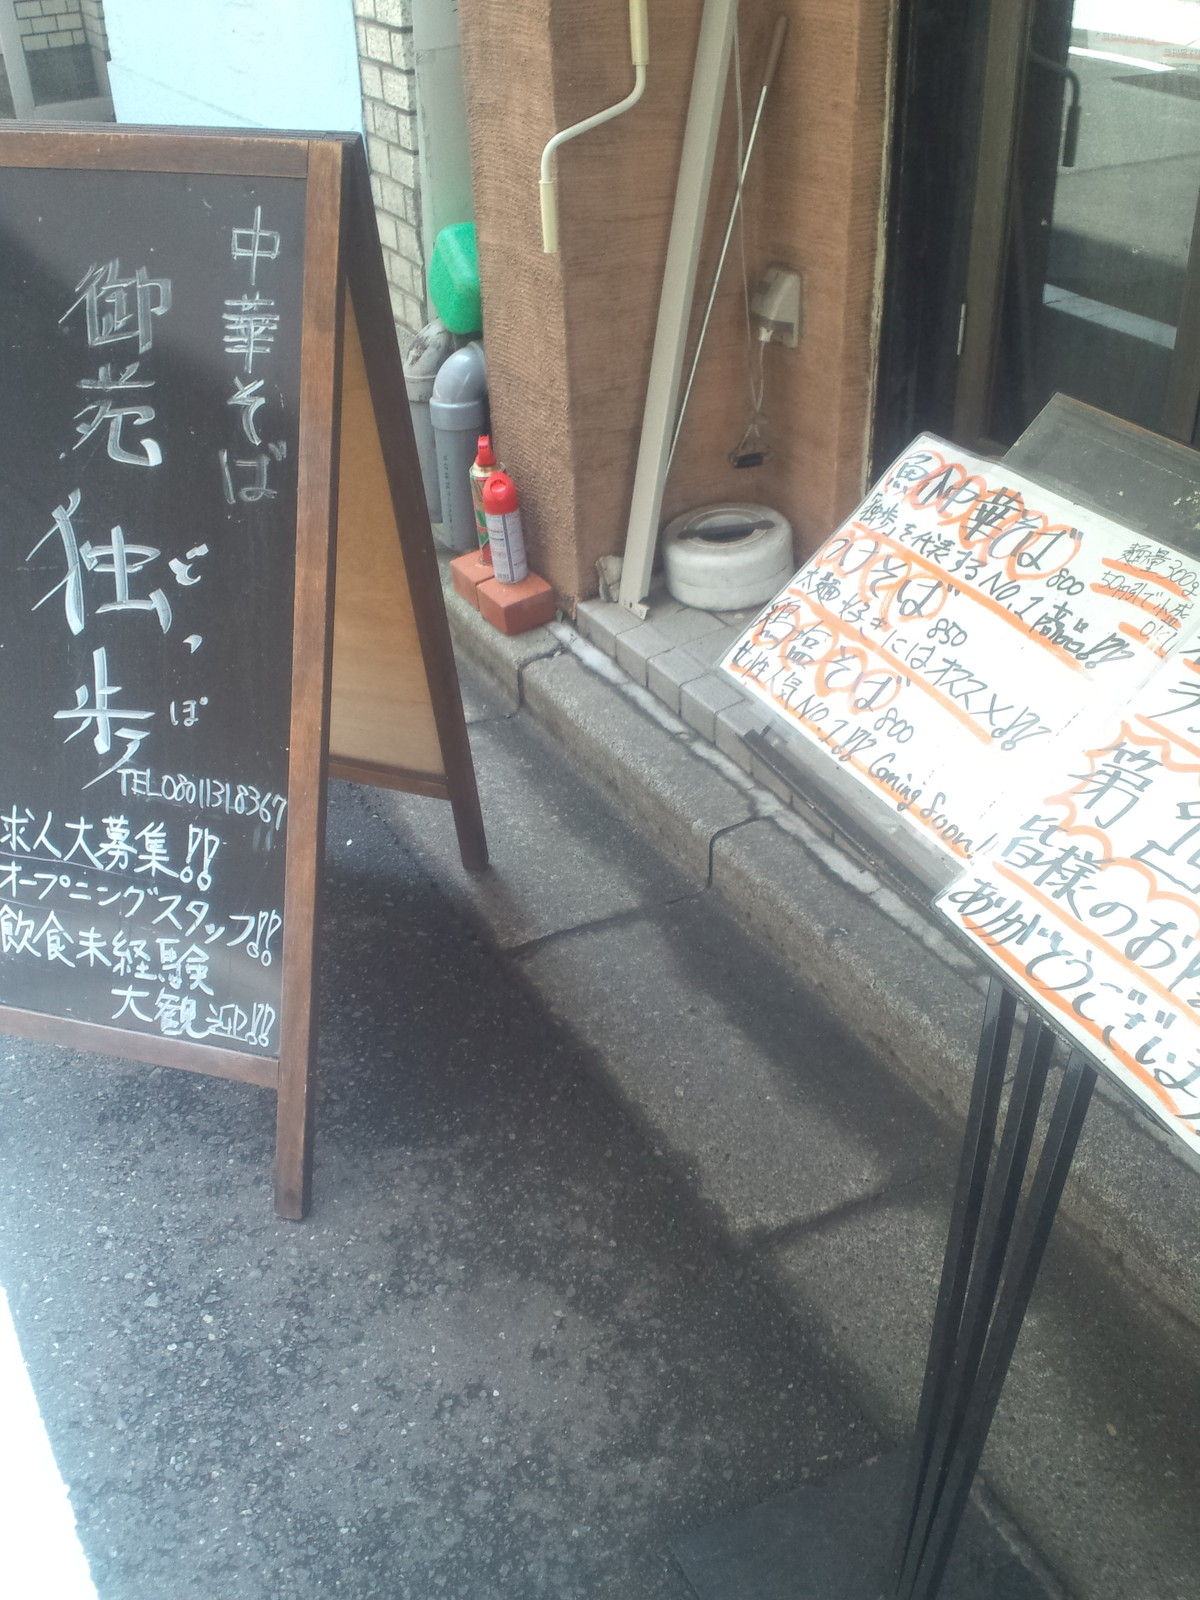 中華そば
御苑
独歩
どっぽ
TEL08011318367
求人大募集!!
オープニングスタッフ!!
飲食未経験
大観迎!!
魚介中華そば800
独歩を代表するNo.1商品!!
麺量300g
50円引
OK!
つけそば850
太麺好きにはオススメ!!
塩そば800
女性人気No.1!! Coming Soon!!
第
皆様のお
ありがとうござい